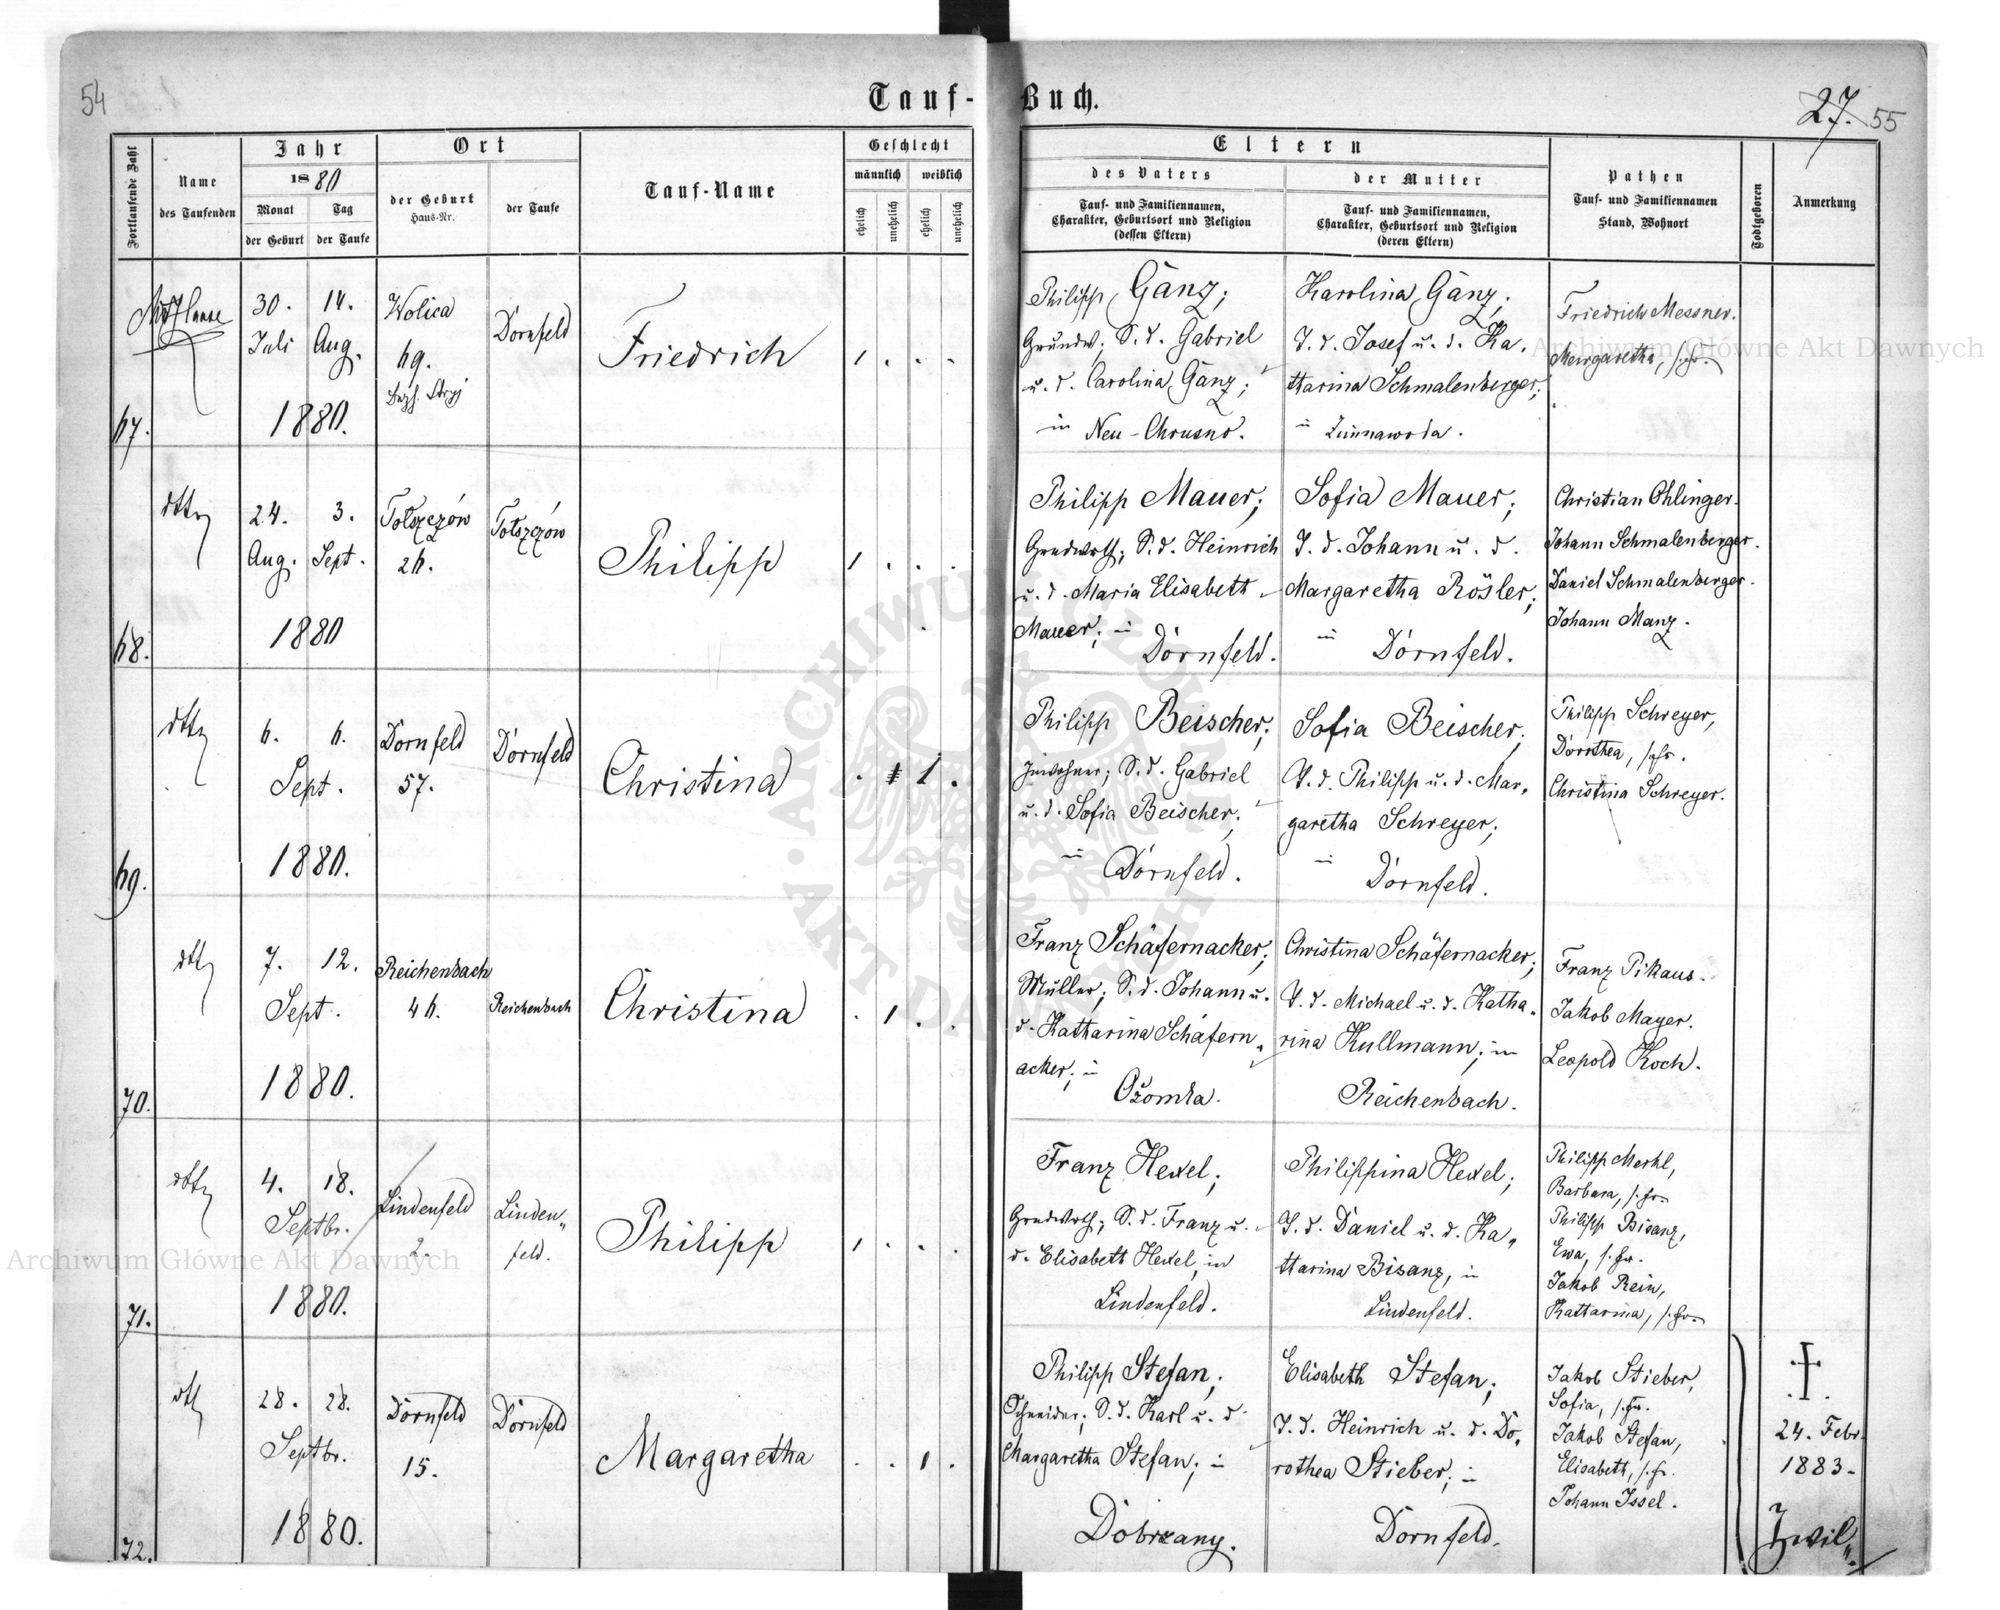 54
Tauf-
Buch.
27. 55
Fortlaufende Zahl
Name
des Taufenden
Jahr
1880
Monat
Tag
der Geburt
der Taufe
Ort
der Geburt
Haus-Nr.
der Taufe
Tauf-Name
Geschlecht
männlich
weiblich
ehelich
unehelich
ehelich
unehelich
Eltern
des Vaters
Tauf- und Familiennamen,
Charakter, Geburtsort und Religion
(dessen Eltern)
der Mutter
Tauf- und Familiennamen,
Charakter, Geburtsort und Religion
(deren Eltern)
Pathen
Tauf- und Familiennamen
Stand, Wohnort
Todtgeboren
Anmerkung
67.
30. 14.
Juli Aug.
1880.
Wolica
69.
Bzh. Stryj
Dornfeld
Friedrich
1 . . .
Philipp Gänz;
Grundw. S. d. Gabriel
u. d. Carolina Gänz;
in Neu-Chrusno.
Karolina Gänz;
T. d. Josef u. d. Ka-
tharina Schmalenberger;
in Zimnawoda.
Friedrich Messner.
Margaretha, s. Fr.
68.
dtto
24. 3.
Aug. Sept.
1880
Tołszczów
26.
Tołszczów
Philipp
1 . . .
Philipp Mauer;
Grndwrth; S. d. Heinrich
u. d. Maria Elisabeth
Mauer; in
Dornfeld.
Sofia Mauer;
T. d. Johann u. d.
Margaretha Rösler;
in Dornfeld.
Christian Ohlinger.
Johann Schmalenberger.
Daniel Schmalenberger.
Johann Manz.
69.
dtto
6. 6.
Sept.
1880.
Dornfeld
57.
Dornfeld
Christina
. 1 .
Philipp Beischer;
Inwohner; S. d. Gabriel
u. d. Sofia Beischer;
in Dornfeld.
Sofia Beischer;
T. d. Philipp u. d. Mar-
garetha Schreyer;
in Dornfeld.
Philipp Schreyer,
Dorothea, s. Fr.
Christina Schreyer.
70.
dtto
7. 12.
Sept.
1880.
Reichenbach
46.
Reichenbach
Christina
. 1 . .
Franz Schäfernacker;
Müller; S. d. Johann u.
d. Katharina Schäfern-
acker; in
Ožomla.
Christina Schäfernacker;
T. d. Michael u. d. Katha-
rina Kullmann; in
Reichenbach.
Franz Pikaus.
Jakob Mayer.
Leopold Koch.
71.
dtto
4. 18.
Septbr.
1880.
Lindenfeld
2.
Linden-
feld.
Philipp
1 . . .
Franz Hexel;
Grndwrth; S. d. Franz u.
d. Elisabeth Hexel, in
Lindenfeld.
Philippina Hexel;
T. d. Daniel u. d. Ka-
tharina Bisanz, in
Lindenfeld.
Philipp Merkl,
Barbara, s. Fr.
Philipp Bisanz,
Ewa, s. Fr.
Jakob Rein,
Katharina, s. Fr.
72.
dtto
28. 28.
Septbr.
1880.
Dornfeld
15.
Dornfeld
Margaretha
. . 1 .
Philipp Stefan;
Schneider; S. d. Karl u. d.
Margaretha Stefan; in
Dobrzany.
Elisabeth Stefan;
T. d. Heinrich u. d. Do-
rothea Stieber; in
Dornfeld.
Jakob Stieber,
Sofia, s. Fr.
Jakob Stefan,
Elisabeth, s. Fr.
Johann Issel.
24. Febr.
1883.
Zwil-
Archiwum Główne Akt Dawnych
Archiwum Główne Akt Dawnych